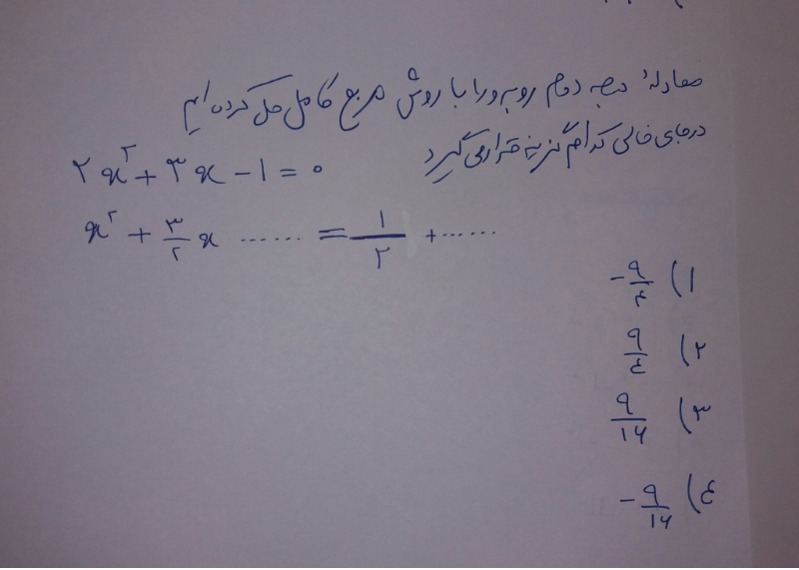 معادلهٔ درجه دوم روبه‌رو را با روش مربع کامل حل کرده‌ایم
در جای خالی کدام گزینه قرار می‌گیرد
۲x² + ۳x - ۱ = ۰
x² + ۳/۲ x ...... = ۱/۲ + ......
۱) -۹/۴
۲) ۹/۴
۳) ۹/۱۶
۴) -۹/۱۶